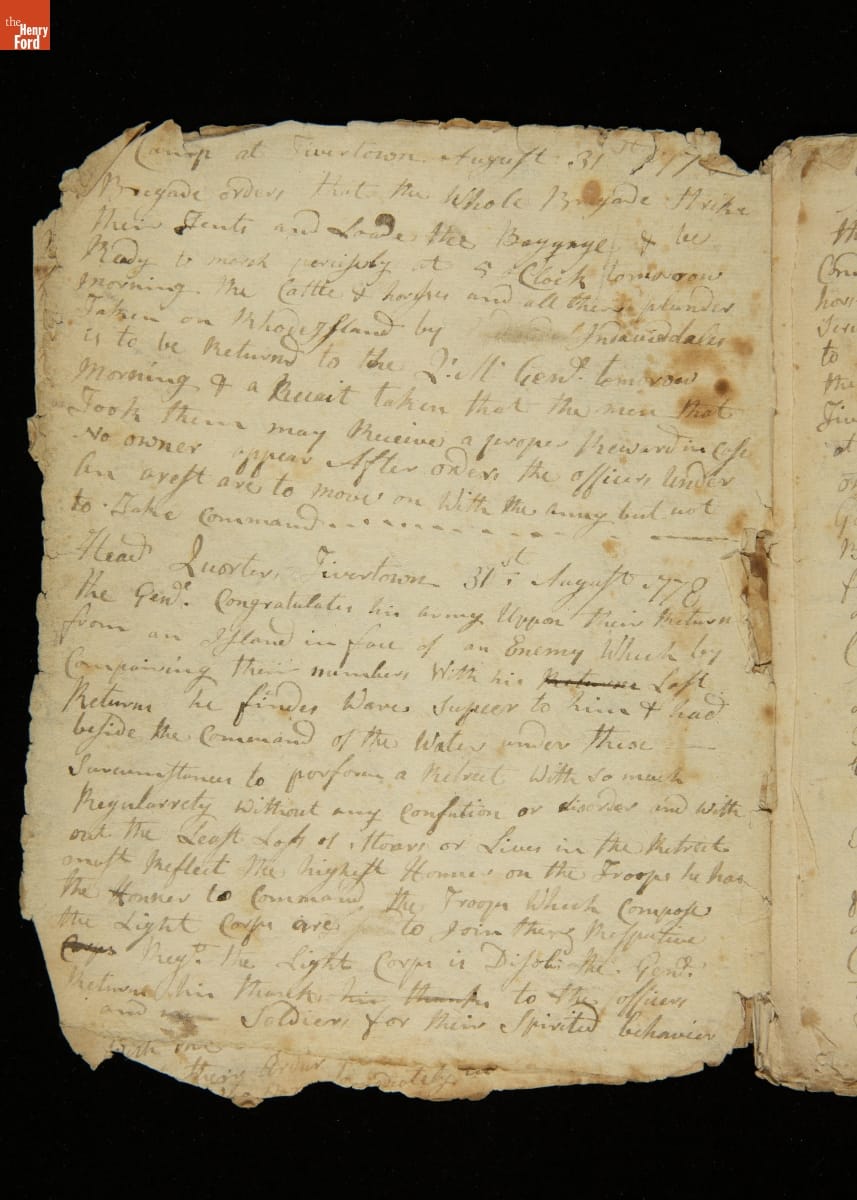 the
Henry
Ford
Camp at Tivertown August 31st 177
Brigade orders that the Whole Brigade Strike
their Tents and Loade the Baggage & be
Ready to march percisely at 5 oClock tomorrow
morning the Cattle & horses and all other plunder
Taken on Rhode Island by Indavidales
is to be Returnd to the Q: M Genl. tomorow
morning & a Receit taken that the men that
Took them may Receive a proper Reward in Case
No owner appear After orders the officers Under
An arest are to move on With the army but not
to Take Command
Head Quarters Tivertown 31st August 1778
the Genl. Congratulates his army Uppon their Return
from an Island in face of an Enemy Which by
Compairing their numbers With his Returns Last
Returns he findes Ware Supeer to him & had
beside the Command of the Water under these
Surcumstances to porform a Retreet With so much
Regularrety without any Confution or disorder and with
out the Least Loss of Stoars or Lives in the Retreet
must Reflect the highest Honner on the Troops he has
the Honner to Command the Troops Which Compose
the Light Corps are to Join there Respective
Corps Regt. the Light Corps is Disolv. the Genl.
Returns his thanks his thanks to the officers
and Soldiers for their Spirited behavier